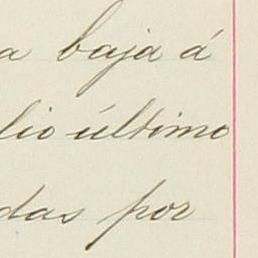 a baja á
lio último
das por